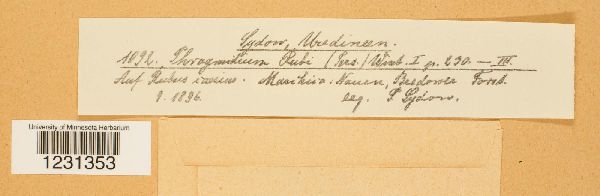 Sydow, Uredineen.
1092. Phragmidium Rubi (Pers.) Wint. I p. 230. — III.
Auf Rubus caesius. Markisva: Nauen, Bredower Forst.
9. 1896. leg. P. Sydow.
University of Minnesota Herbarium
1231353